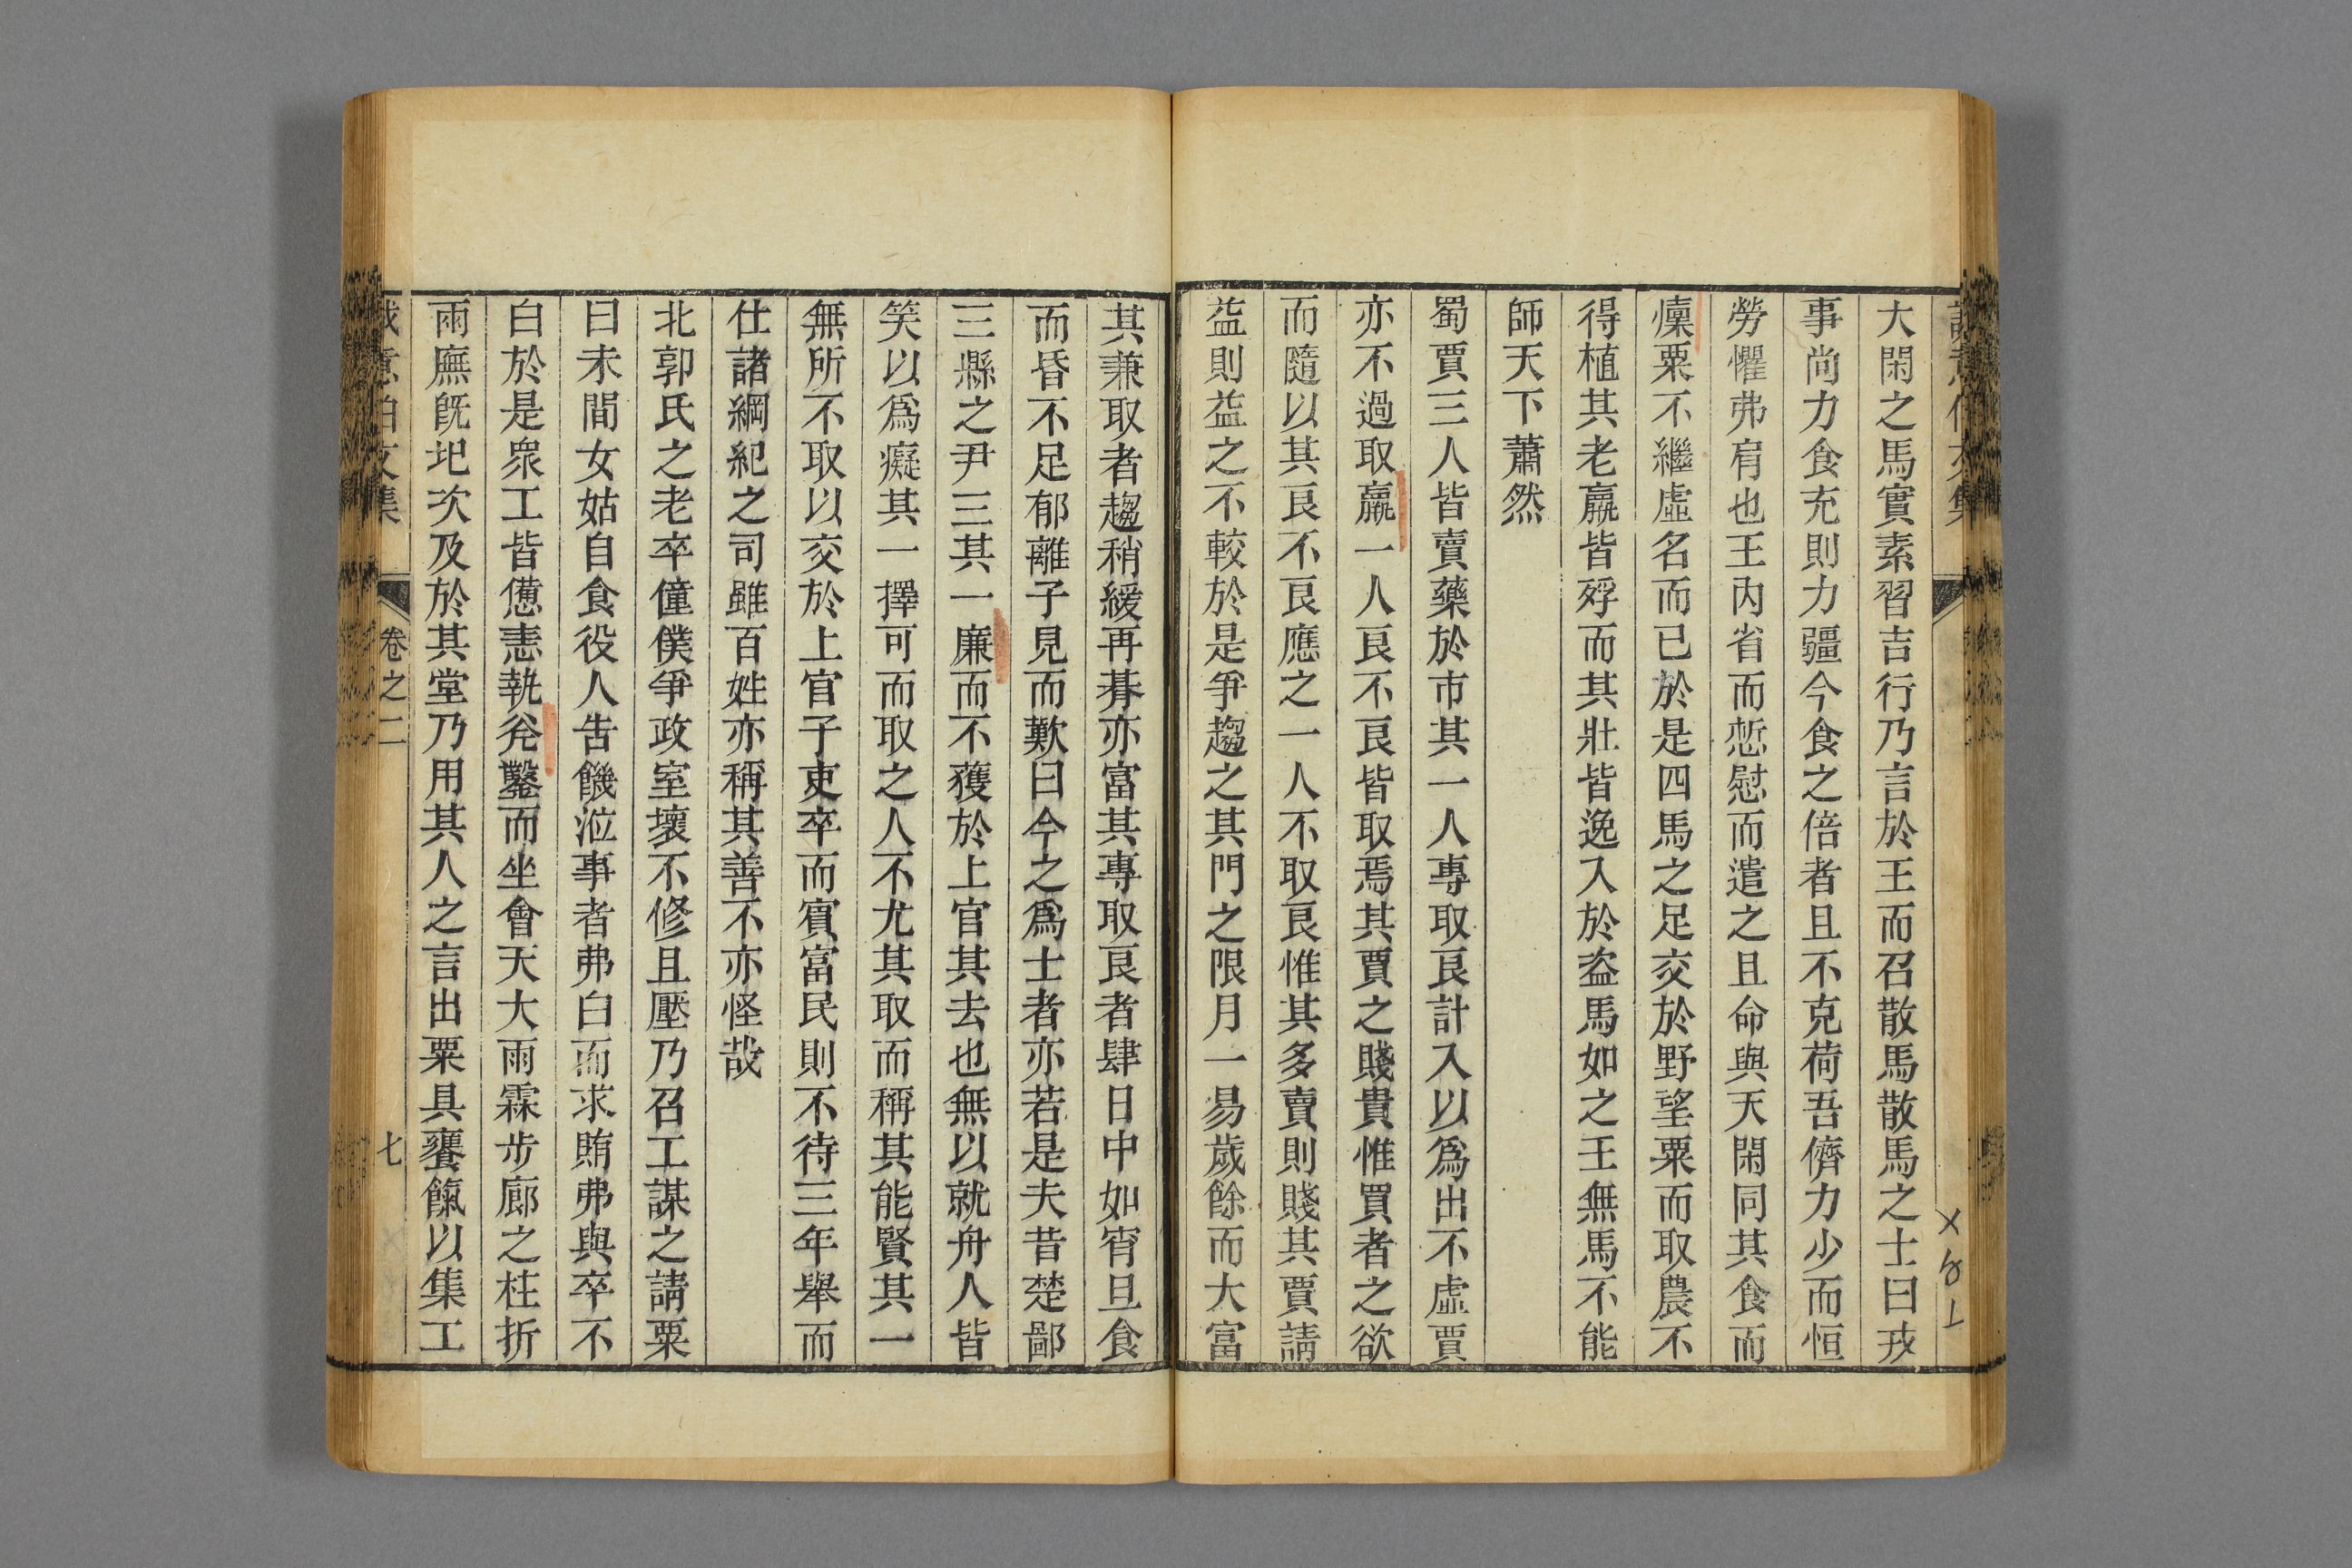 大閑之馬實素習吉行乃言於王而召散馬散馬之士曰戎
事尚力食充則力疆今食之倍者且不克荷吾儕力少而恒
勞懼弗肩也王內省而慙慰而遣之且命與天閑同其食而
廩粟不繼虛名而已於是四馬之足交於野望粟而取農不
得植其老羸皆殍而其壯皆逸入於盜馬如之王無馬不能
師天下蕭然
蜀賈三人皆賣藥於市其一人專取良計入以爲出不虛賈
亦不過取贏一人良不良皆取焉其賈之賤貴惟買者之欲
而隨以其良不良應之一人不取良惟其多賣則賤其賈請
益則益之不較於是爭趨之其門之限月一易歲餘而大富
其兼取者趨稍緩再朞亦富其專取良者肆日中如宵旦食
而昏不足郁離子見而歎曰今之爲士者亦若是夫昔楚鄙
三縣之尹三其一廉而不獲於上官其去也無以就舟人皆
笑以爲癡其一擇可而取之人不尤其取而稱其能賢其一
無所不取以交於上官子吏卒而賓富民則不待三年舉而
仕諸綱紀之司雖百姓亦稱其善不亦怪哉
北郭氏之老卒僮僕爭政室壞不修且壓乃召工謀之請粟
曰未間女姑自食役人告饑涖事者弗白而求賄弗與卒不
白於是衆工皆憊恚執斧鑿而坐會天大雨霖步廊之柱折
雨廡旣圯次及於其堂乃用其人之言出粟具饔餼以集工
意伯文集
卷之二
七